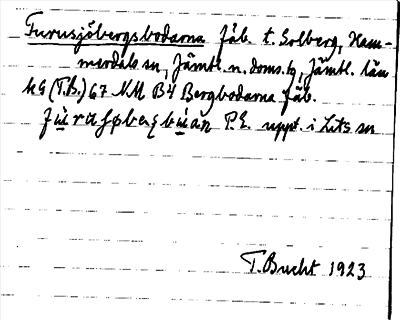 Furusjöbergsbodarna fäb. t. Solberg, Ham-
merdals sn, Jämtl. n. doms. tg, Jämtl. län
HG (T.B.) 67 NM B4 Bergbodarna fäb.
P.E. uppt. i Lits sn
T. Bucht 1923